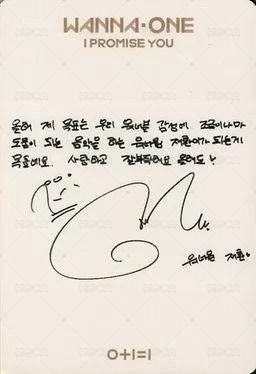 WANNA·ONE
I PROMISE YOU
올해 제 목표는 우리 워너블 감정에 조금이나마
도움이 되는 음악을 하는 워너원 재환이가 되는게
목표에요. 사랑하고 잘부탁해요 올해도!
워너원 재환.
0+1=1